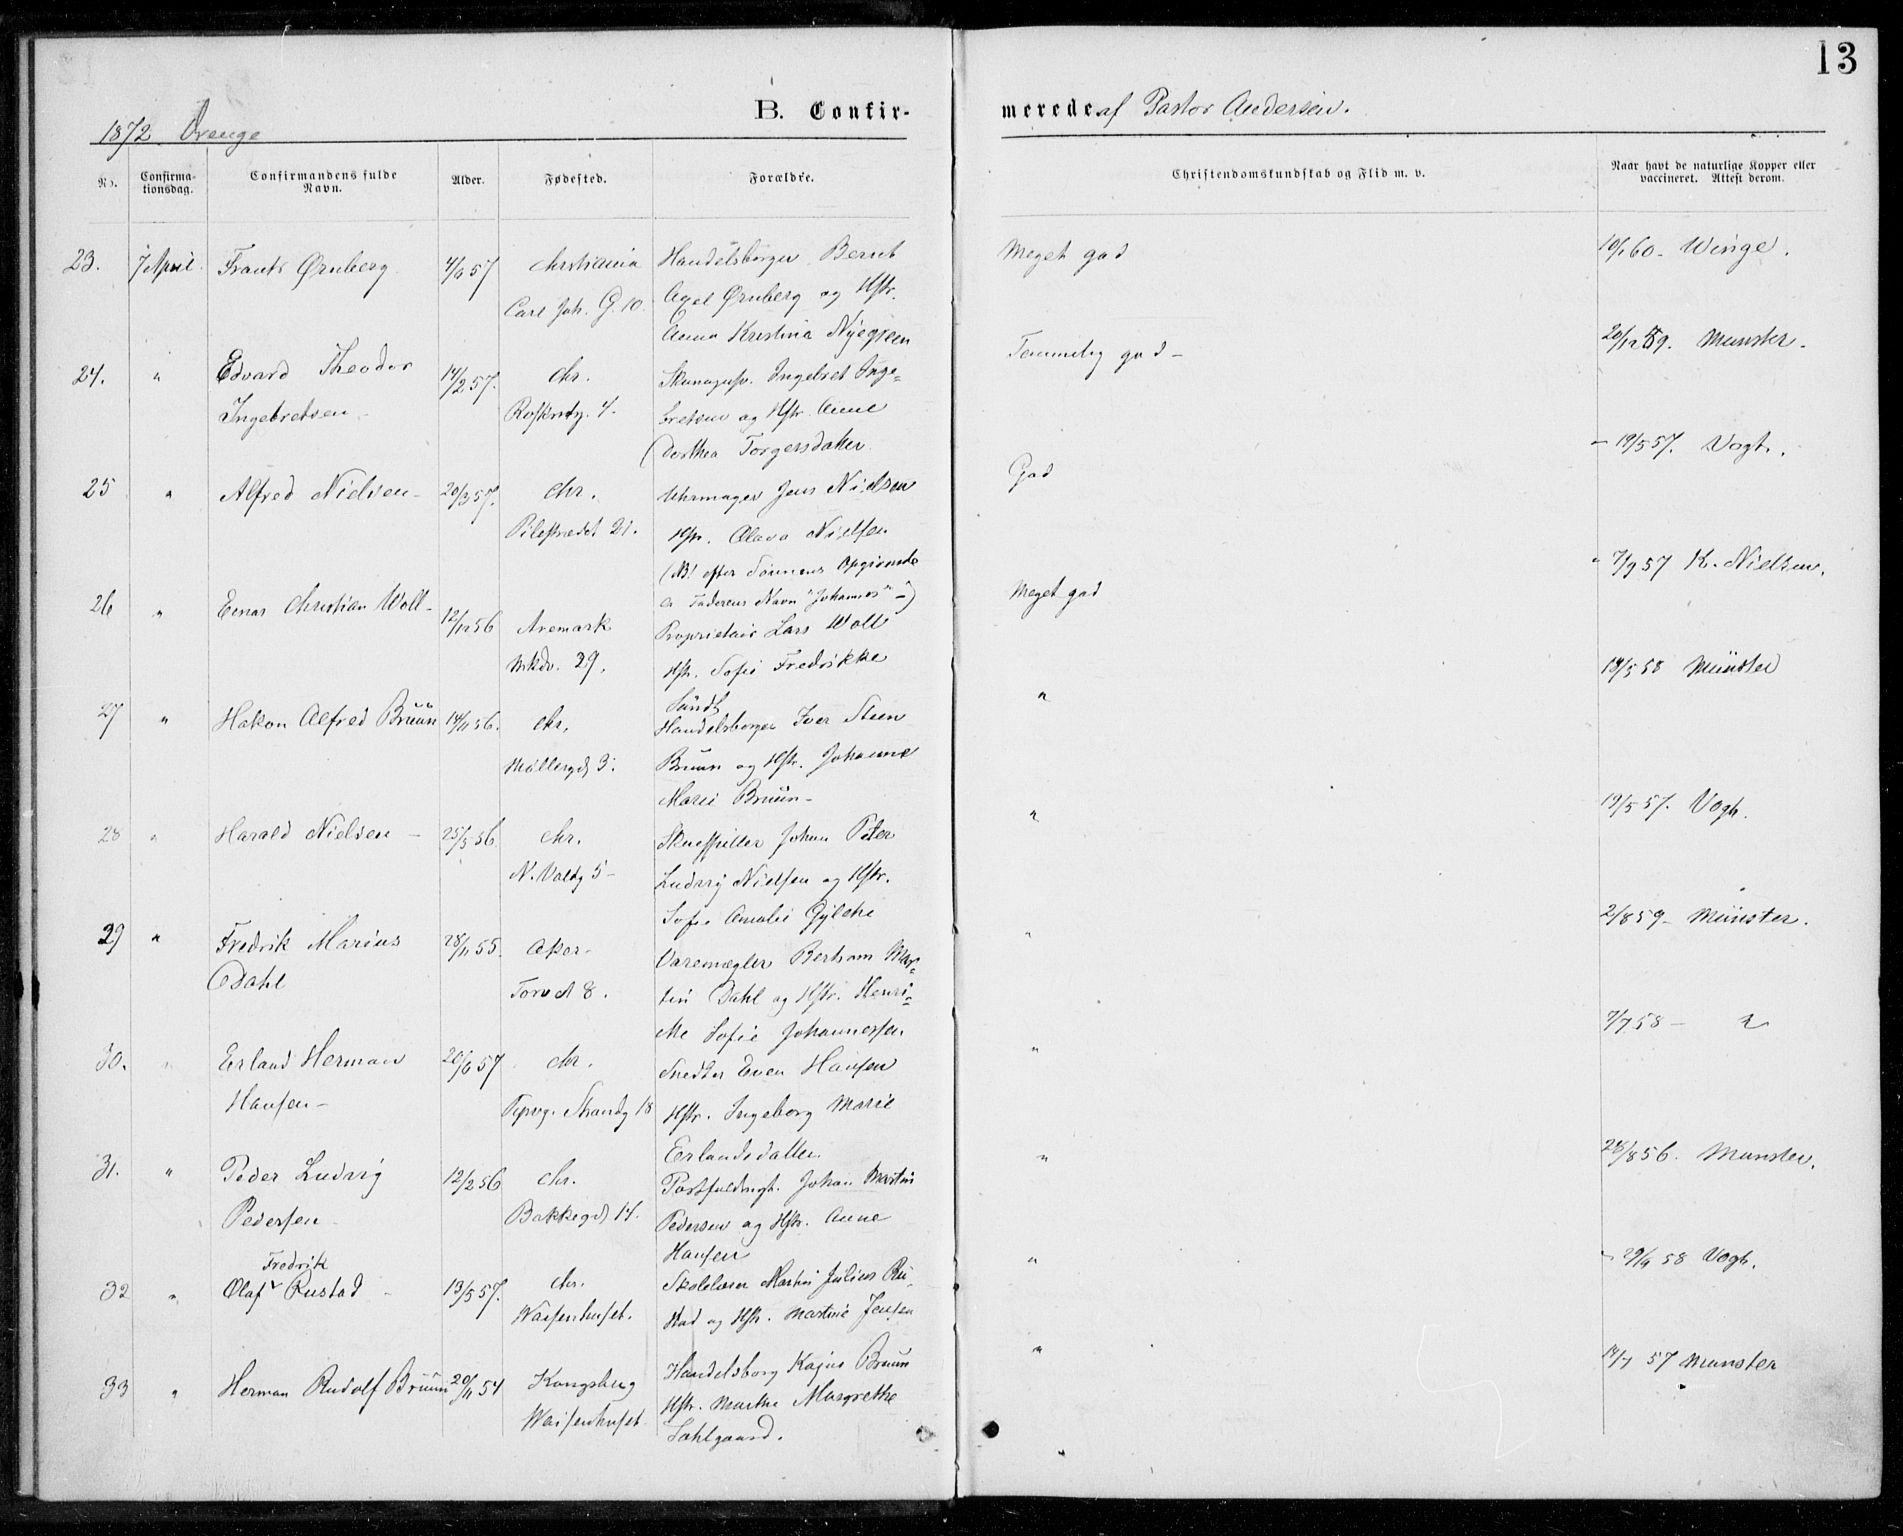 13
1872 Drenge
B. Confir-
merede af Pastor Andersen.
No.
Confirma-
tionsdag.
Confirmandens fulde
Navn.
Alder.
Fødested.
Forældre.
Christendomskundskab og Flid m. v.
Naar havt de naturlige Kopper eller
vaccineret. Attest derom.
23. 7 April. Frants Ørnberg 4/6 57 Christiania Handelsborger Bernt
Carl Joh. G. 10. Axel Ørnberg og Hstr.
Anna Kristina Nyegreen
Meget god
10/1 60 - Winge.
24. " Edvard Theodor 14/2 57. Chr. Skomagersv. Ingebret Inge-
Ingebretsen - 4. bretsen og Hstr. Anne
Dorthea Torgersdatter
Temmelig god -
20/12 59. Munster.
25 " Alfred Nielsen - 20/3 57. Chr. Uhrmager Jens Nielsen
Pilestrædet 21. Hstr. Olava Nielsen
(NB! efter Sønnens Opgivende
er Faderens Navn "Johannes" -)
God
- 19/5 57. Vogt.
26 " Einar Christian Woll - 12/12 56 Aremark Proprietair Lars Woll
29. Hstr. Sofie Fredrikke
Sundt
Meget god
" 7/9 57 K. Nielsen.
27 " Hakon Alfred Bruun 14/11 56. Chr. Handelsborger Iver Steen
Møllergd 3. Bruun og Hstr. Johanne
Marie Bruun -
"
18/5 58 Münster
28 " Harald Nielsen - 25/5 56. Chr. Skuespiller Johan Peter
N. Voldg 5 - Ludvig Nielsen og Hstr.
Sofie Amalie Gylche
"
19/5 57. Vogt.
29 " Fredrik Marius 28/11 55. Aker - Varemægler Bertram Mar-
Dahl Torvet 8. tin Dahl og Hstr. Henri-
Sofie Johannessen
"
2/8 59 - Münster.
30. " Erland Herman 20/6 57 Chr. Snedker Even Hansen
Hansen - Strandg 18 Hstr. Ingeborg Marie
Erlandsdatter.
"
7/7 58 - "
31. " Peder Ludvig 12/2 56 Chr. Postfuldmgt. Johan Martin
Pedersen - Bakkegd 14. Pedersen og Hstr. Anne
Hansen
"
28/8 56. Munster.
Fredrik
32 " Olaf ᵛ Rustad - 13/5 57. Chr. Skolelærer Martin Julius Ru-
Waisenhuset. stad og Hstr. Martine Jensen
"
- 29/4 58 Vogt.
33 " Herman Rudolf Bruun 20/11 54 Kongsberg Handelsborg Kajus Bruun
Waisenhuset Hstr. Marthe Margrethe
Sahlgaard.
"
14/7 57 Munster